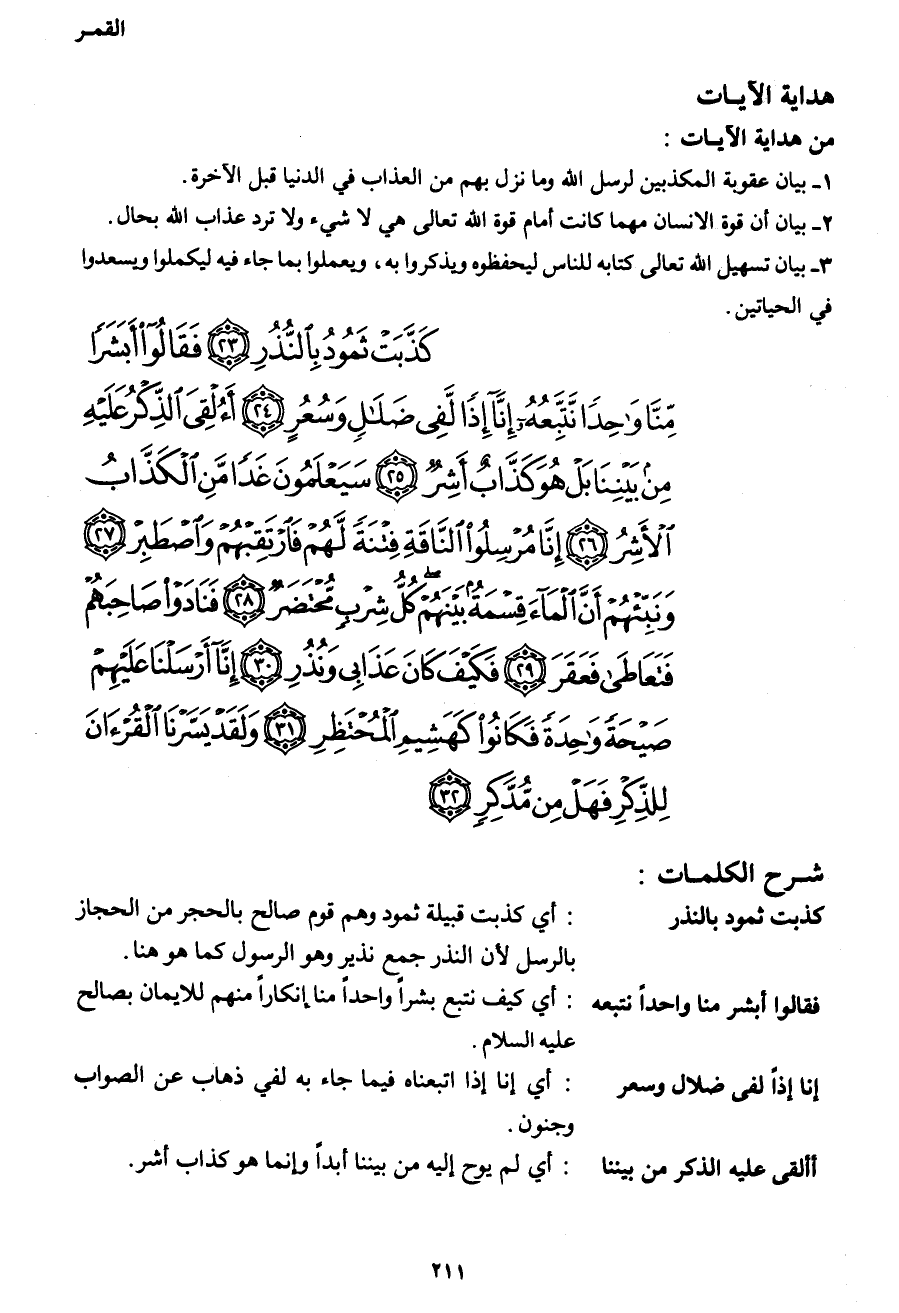 القمـر
هداية الآيـات
من هداية الآيـات :
١ـ بيان عقوبة المكذبين لرسل الله وما نزل بهم من العذاب في الدنيا قبل الآخرة .
٢ـ بيان أن قوة الانسان مهما كانت أمام قوة الله تعالى هي لا شيء ولا ترد عذاب الله بحال .
٣ـ بيان تسهيل الله تعالى كتابه للناس ليحفظوه ويذكروا به ، ويعملوا بما جاء فيه ليكملوا ويسعدوا
في الحياتين .
كَذَّبَتْ ثَمُودُ بِٱلنُّذُرِ ٢٣ فَقَالُوٓا۟ أَبَشَرًا
مِّنَّا وَٰحِدًا نَّتَّبِعُهُۥٓ إِنَّآ إِذًا لَّفِى ضَلَٰلٍ وَسُعُرٍ ٢٤ أَءُلْقِىَ ٱلذِّكْرُ عَلَيْهِ
مِنۢ بَيْنِنَا بَلْ هُوَ كَذَّابٌ أَشِرٌ ٢٥ سَيَعْلَمُونَ غَدًا مَّنِ ٱلْكَذَّابُ
ٱلْأَشِرُ ٢٦ إِنَّا مُرْسِلُوا۟ ٱلنَّاقَةِ فِتْنَةً لَّهُمْ فَٱرْتَقِبْهُمْ وَٱصْطَبِرْ ٢٧
وَنَبِّئْهُمْ أَنَّ ٱلْمَآءَ قِسْمَةٌۢ بَيْنَهُمْ ۖ كُلُّ شِرْبٍ مُّحْتَضَرٌ ٢٨ فَنَادَوْا۟ صَاحِبَهُمْ
فَتَعَاطَىٰ فَعَقَرَ ٢٩ فَكَيْفَ كَانَ عَذَابِى وَنُذُرِ ٣٠ إِنَّآ أَرْسَلْنَا عَلَيْهِمْ
صَيْحَةً وَٰحِدَةً فَكَانُوا۟ كَهَشِيمِ ٱلْمُحْتَظِرِ ٣١ وَلَقَدْ يَسَّرْنَا ٱلْقُرْءَانَ
لِلذِّكْرِ فَهَلْ مِن مُّدَّكِرٍ ٣٢
شـرح الكلمـات :
كذبت ثمود بالنذر : أي كذبت قبيلة ثمود وهم قوم صالح بالحجر من الحجاز
بالرسل لأن النذر جمع نذير وهو الرسول كما هو هنا .
فقالوا أبشر منا واحداً نتبعه : أي كيف نتبع بشراً واحداً منا إنكاراً منهم للايمان بصالح
عليه السلام .
إنا إذاً لفى ضلال وسعر : أي إنا إذا اتبعناه فيما جاء به لفي ذهاب عن الصواب
وجنون .
أألقى عليه الذكر من بيننا : أي لم يوح إليه من بيننا أبداً وإنما هو كذاب أشر .
٢١١